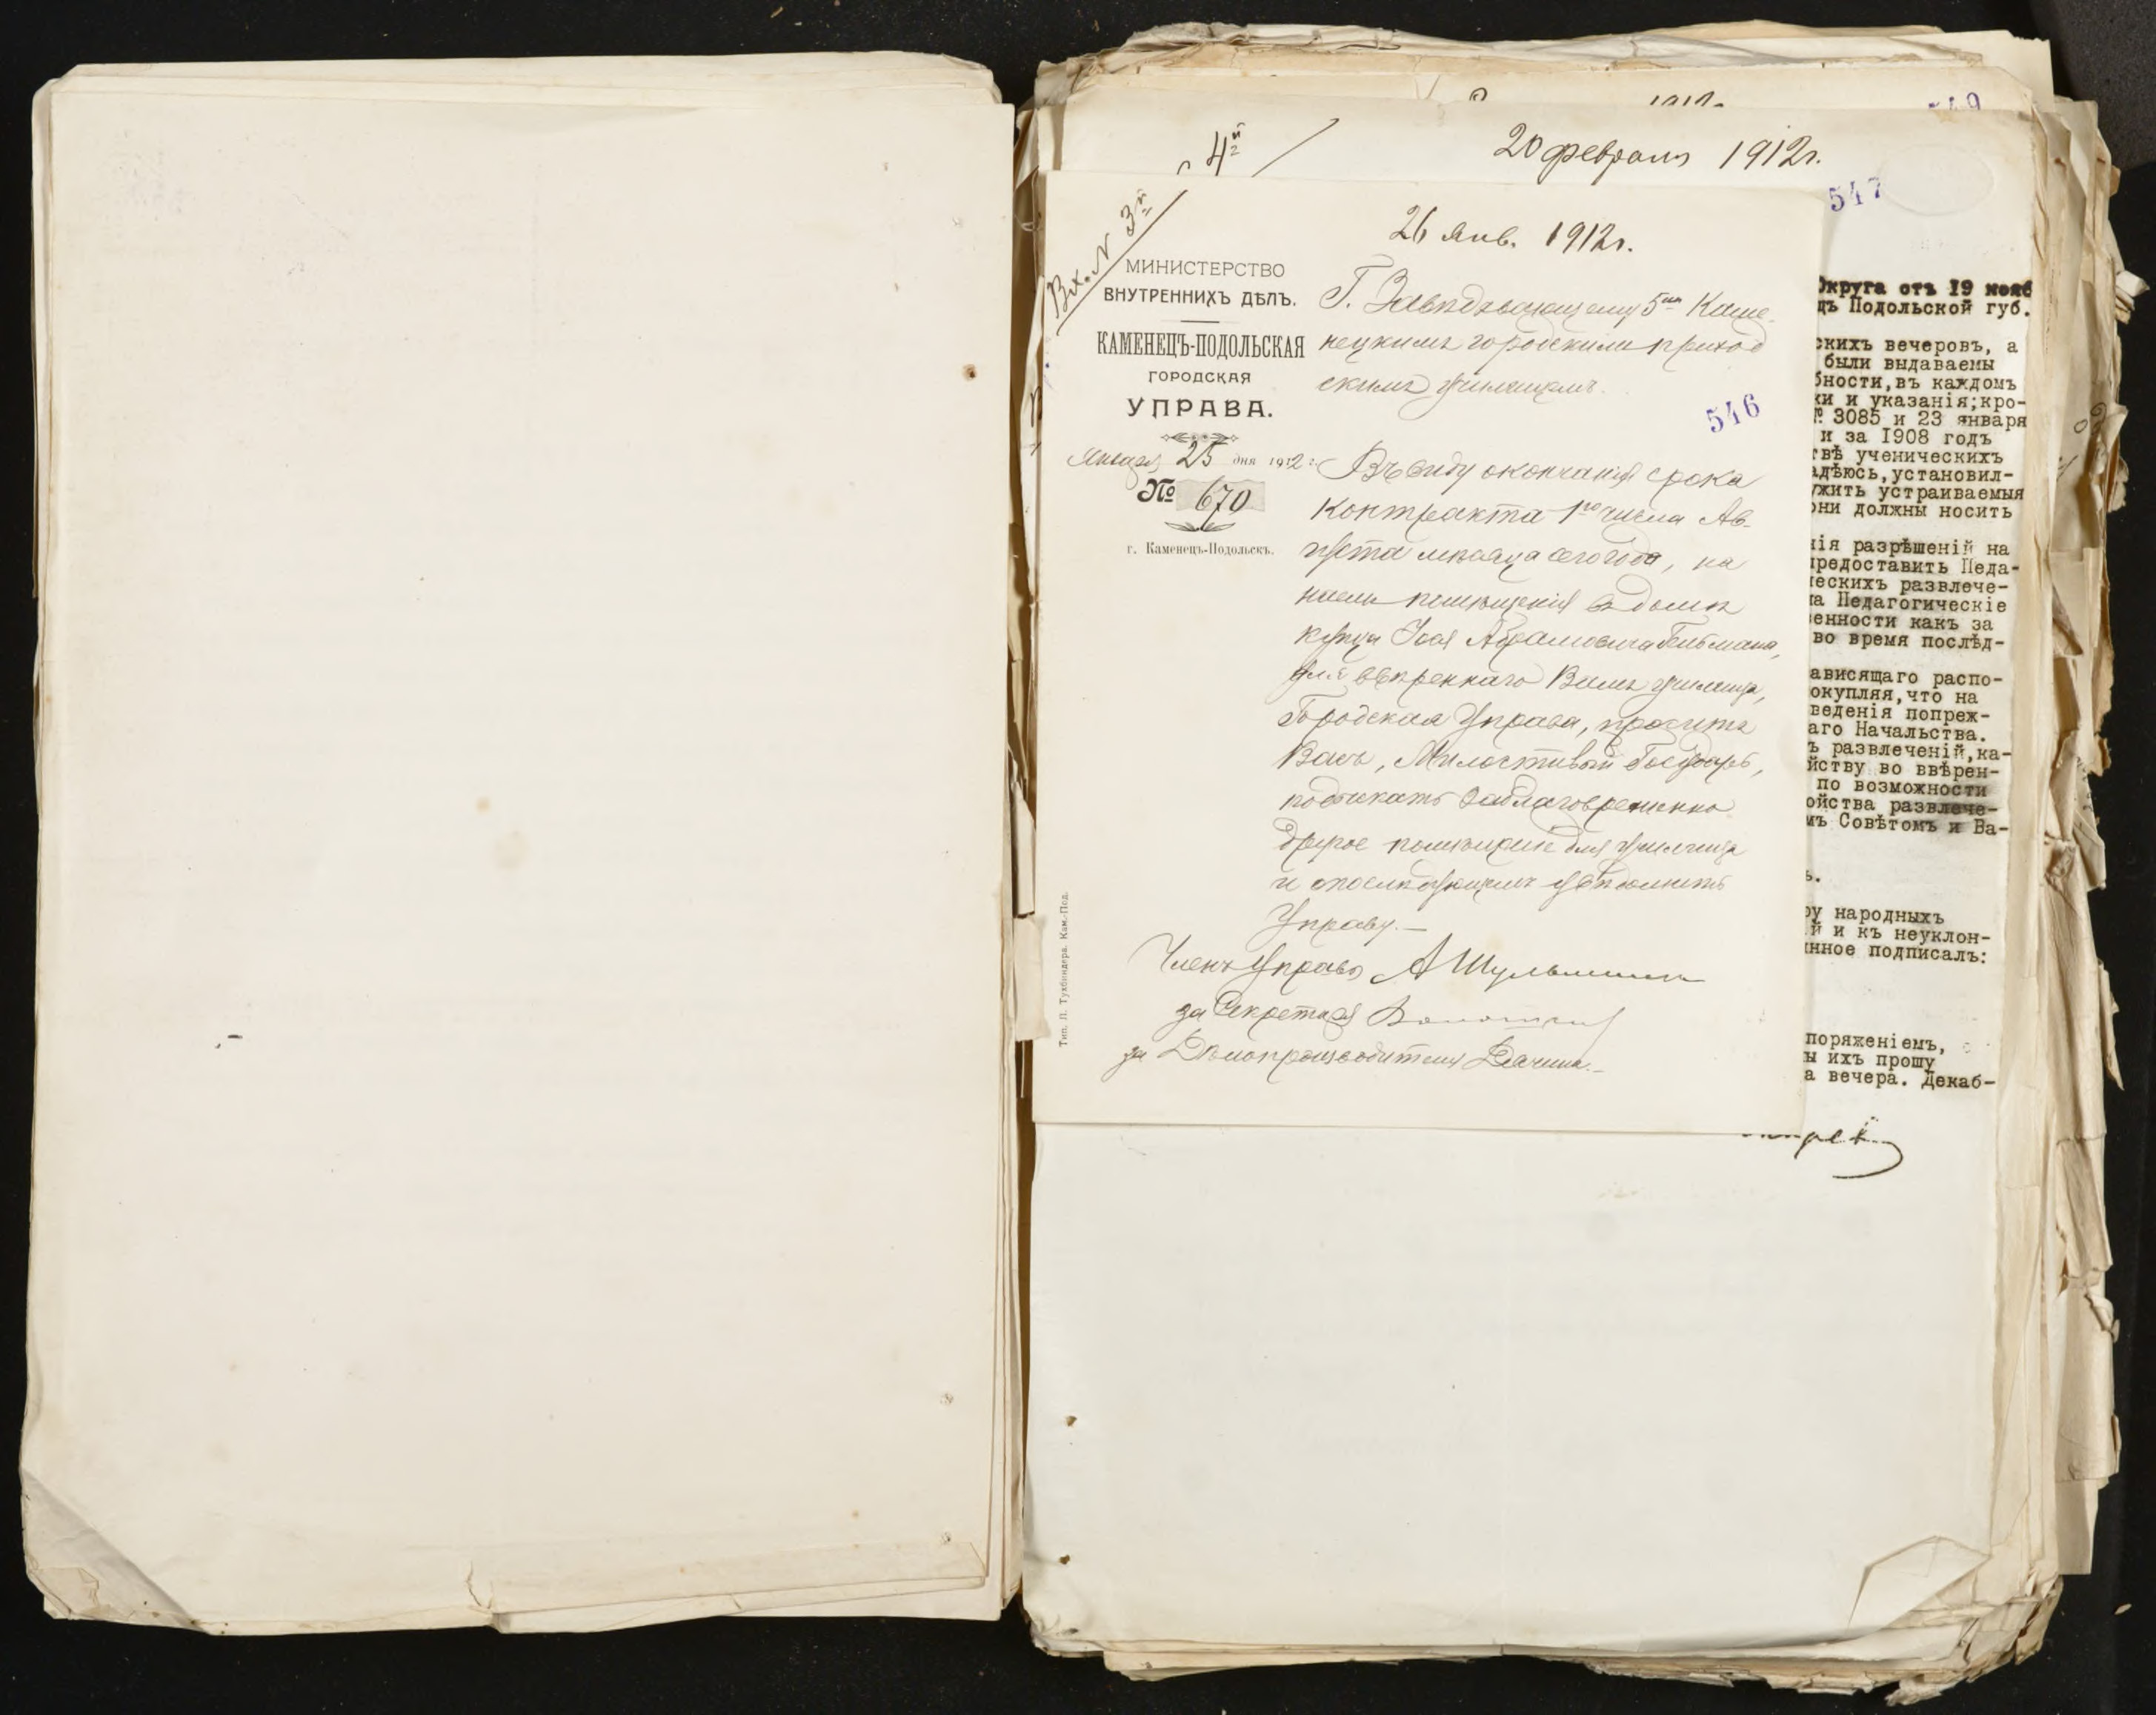 549
4й
20 февраля 1912г.
547
Вх. N 3й
26 янв. 1912г.
МИНИСТЕРСТВО
ВНУТРЕННИХЪ ДѢЛЪ.
КАМЕНЕЦЪ-ПОДОЛЬСКАЯ
ГОРОДСКАЯ
УПРАВА.
Января 25 дня 1912 г.
№ 670
г. Каменецъ-Подольскъ.
Г. Завѣдывающему 5мъ Каме-
нецкимъ городскимъ приход
скимъ училищемъ.
546
Въ виду окончанія срока
контракта 1го числа Ав-
густа мѣсяца сего года, на
наемъ помѣщенія въ домѣ
купца Абрамовича
для ввѣреннаго Вамъ училища,
Городская Управа, проситъ
Васъ, Милостивый Государь,
подыскать заблаговременно
другое помѣщеніе для училища
и о послѣдующемъ увѣдомить
Управу.—
Членъ Управы
за Секретаря
за Дѣлопроизводителя
Тип. Л. Тухбиндера. Кам.-Под.
Округа отъ 19 нояб
дъ Подольской губ.
скихъ вечеровъ, а
были выдаваемы
бности, въ каждомъ
ки и указанія; кро-
№ 3085 и 23 января
и за 1908 годъ
твѣ ученическихъ
адѣюсь, установил-
ужить устраиваемыя
они должны носить
нія разрѣшеній на
предоставить Педа-
ческихъ развлече-
на Педагогическіе
венности какъ за
во время послѣд-
ависящаго распо-
окупляя, что на
ведения попреж-
аго Начальства.
ъ развлеченій, ка-
йству во ввѣрен-
по возможности
ойства развлече-
мъ Совѣтомъ и Ва-
ь.
ру народныхъ
й и къ неуклон-
инное подписалъ:
поряженіемъ,
ы ихъ прошу
а вечера. Декаб-